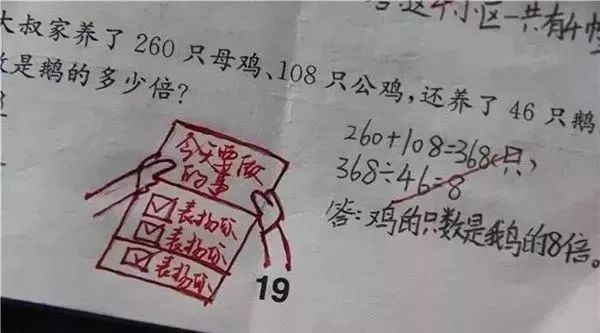 答:这4个小区一共有4幢
大叔家养了 260 只母鸡、108 只公鸡,还养了 46 只鹅
是鹅的多少倍?
260+108=368(只)
368÷46=8
答:鸡的只数是鹅的8倍。
今天要做
的事
表扬你
表扬你
表扬你
19